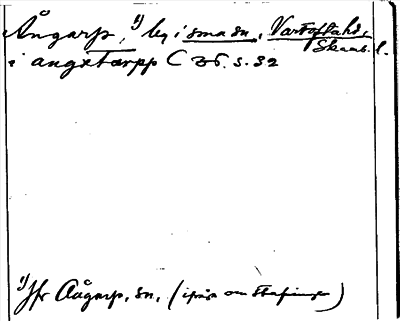 Ångarp, 1) by i sma sn, Vartofta hd,
Skarab. l.
i angxtarpp C 36. s. 32
1) Jfr Ångarp, sn, (ifråga om stafningen)